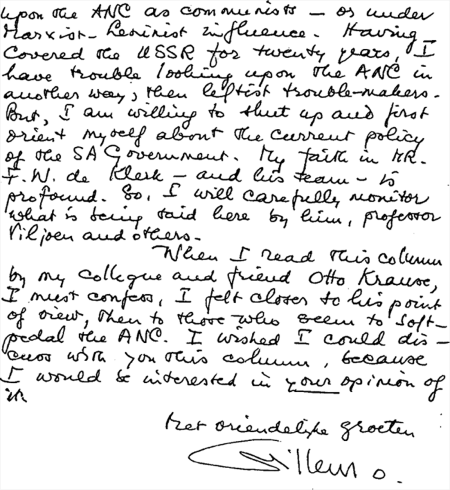 upon the ANC as communists – or under
Marxist-Leninist influence. Having
covered the USSR for twenty years, I
have trouble looking upon the ANC in
another way, then leftist trouble-makers.
But, I am willing to shut up and first
orient myself about the current policy
of the SA Government. My faith in MR.
F.W. de Klerk – and his team – is
profound. So, I will carefully monitor
what is being said here by him, professor
Viljoen and others.
When I read this column
by my collegue and friend Otto Krause,
I must confess, I felt closer to his point
of view, then to those who seem to soft-
pedal the ANC. I wished I could dis-
cuss with you this column, because
I would be interested in your opinion of
it.
Met vriendelijke groeten
Willem O.